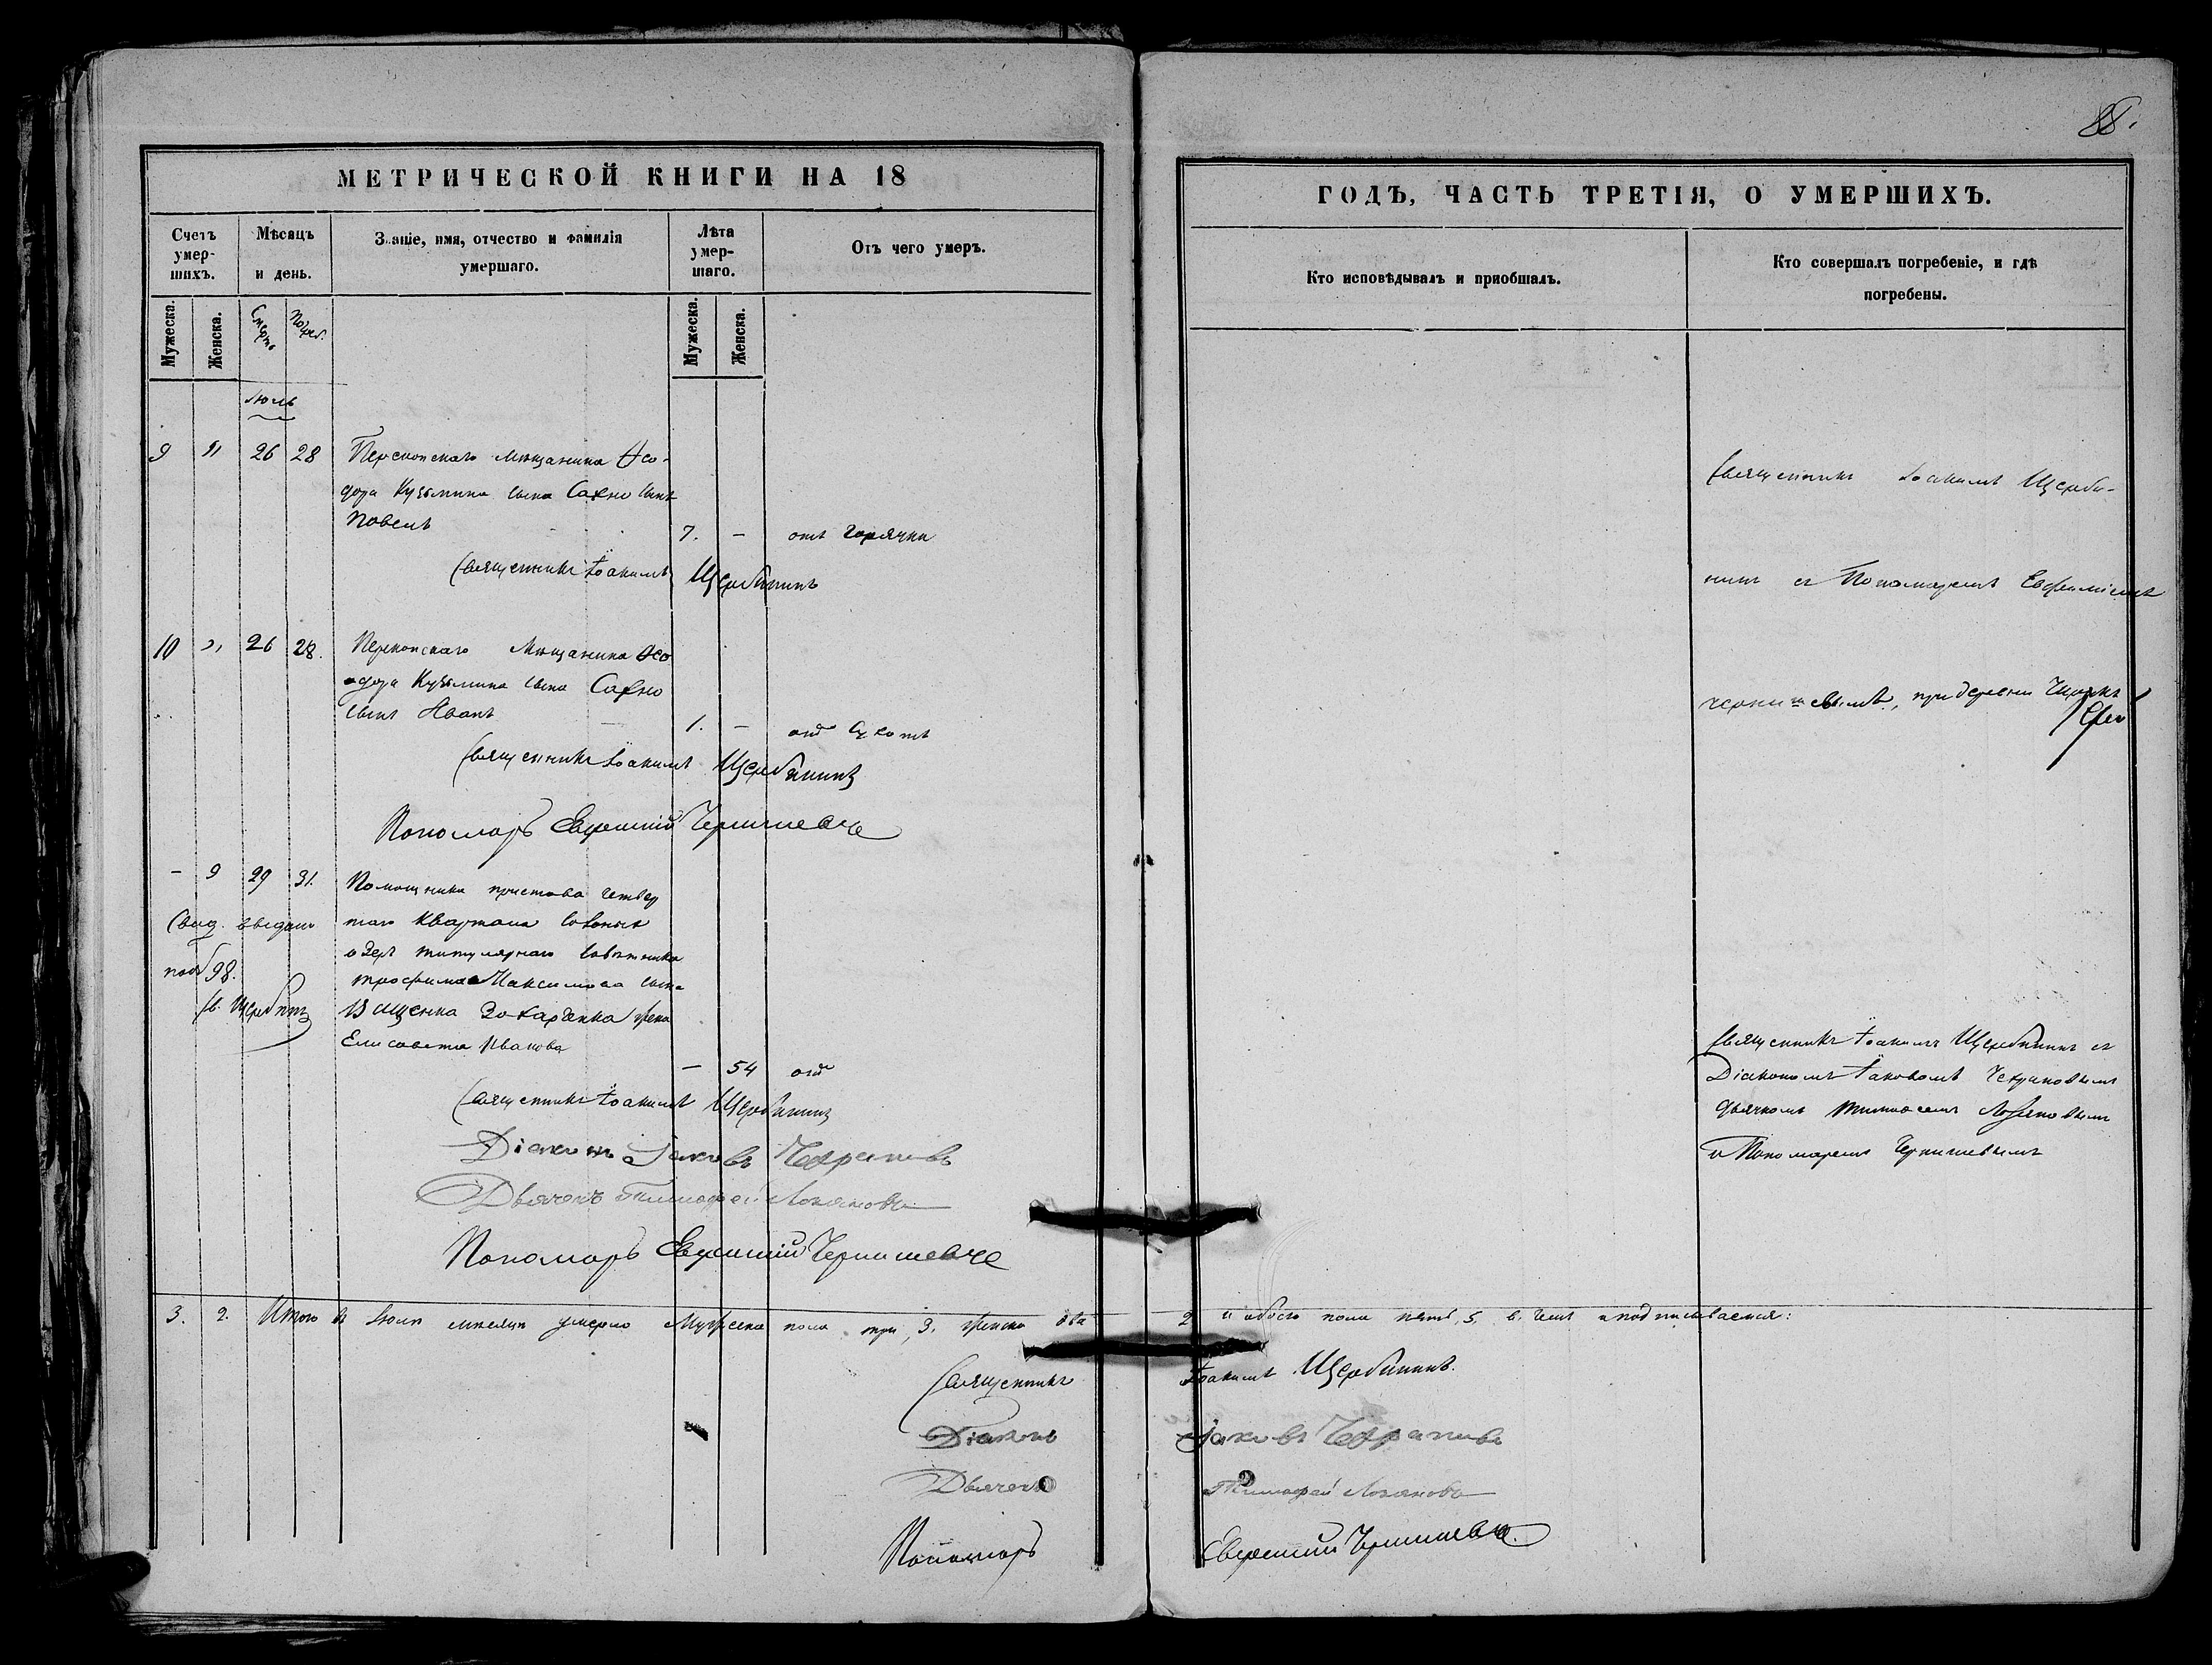 88.
МЕТРИЧЕСКОЙ КНИГИ НА 18
ГОДЪ, ЧАСТЬ ТРЕТІЯ, О УМЕРШИХЪ.
Счетъ умер-
шихъ.
Мѣсяцъ
и день.
Званіе, имя, отчество и фамилія
умершаго.
Лѣта
умер-
шаго.
Отъ чего умеръ.
Кто исповѣдывалъ и пріобщалъ.
Кто совершалъ погребеніе, и гдѣ
погребены.
Мужеска.
Женска.
Смерть
Погреб.
Мужеска.
Женска.
Июль
9 " 26 28 Перекопскаго мѣщанина Ѳео-
дора Кузьмина сына Сахно сынъ
Павелъ
7. - отъ горячки
Священникъ Іоакимъ Щербининъ
10 " 26 28. Перекопскаго Мѣщанина Ѳео
дора Кузьмина сына Сахно
сынъ Иванъ
1. - отъ
Священникъ Іоакимъ Щербининъ
Пономарь Евфимій
Священникъ Іоакимъ Щерби-
нинъ съ Пономаремъ Евфиміемъ
при деревни
- 9 29 31. Помощника пристава четвер
таго квартала соленыхъ
озеръ титулярнаго совѣтника
Трофима Максимова сына
жена
Елисавета Иванова
- 54 отъ
Свид. выдано
подъ 98.
Св. Щербининъ
Священникъ Іоакимъ Щербининъ
Діаконъ Іаковъ
Дьячекъ Тимофей
Пономарь Евфимій
Священникъ Іоакимъ Щербининъ съ
Діакономъ Іаковомъ
дьячкомъ Тимофеемъ
и Пономаремъ
3. 2. Итого въ Іюлѣ мѣсяцѣ умерло Мужеска пола три, 3. женска два 2 и обоего пола пять, 5. въ чемъ и подписываемся:
Священникъ Іоакимъ Щербининъ.
Діаконъ Іаковъ
Дьячекъ Тимофей
Пономарь Евфимій